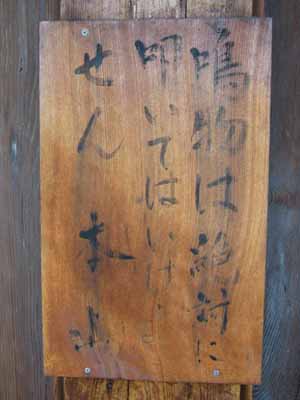 鳴物は絶対に
叩いてはいけま
せん 本山